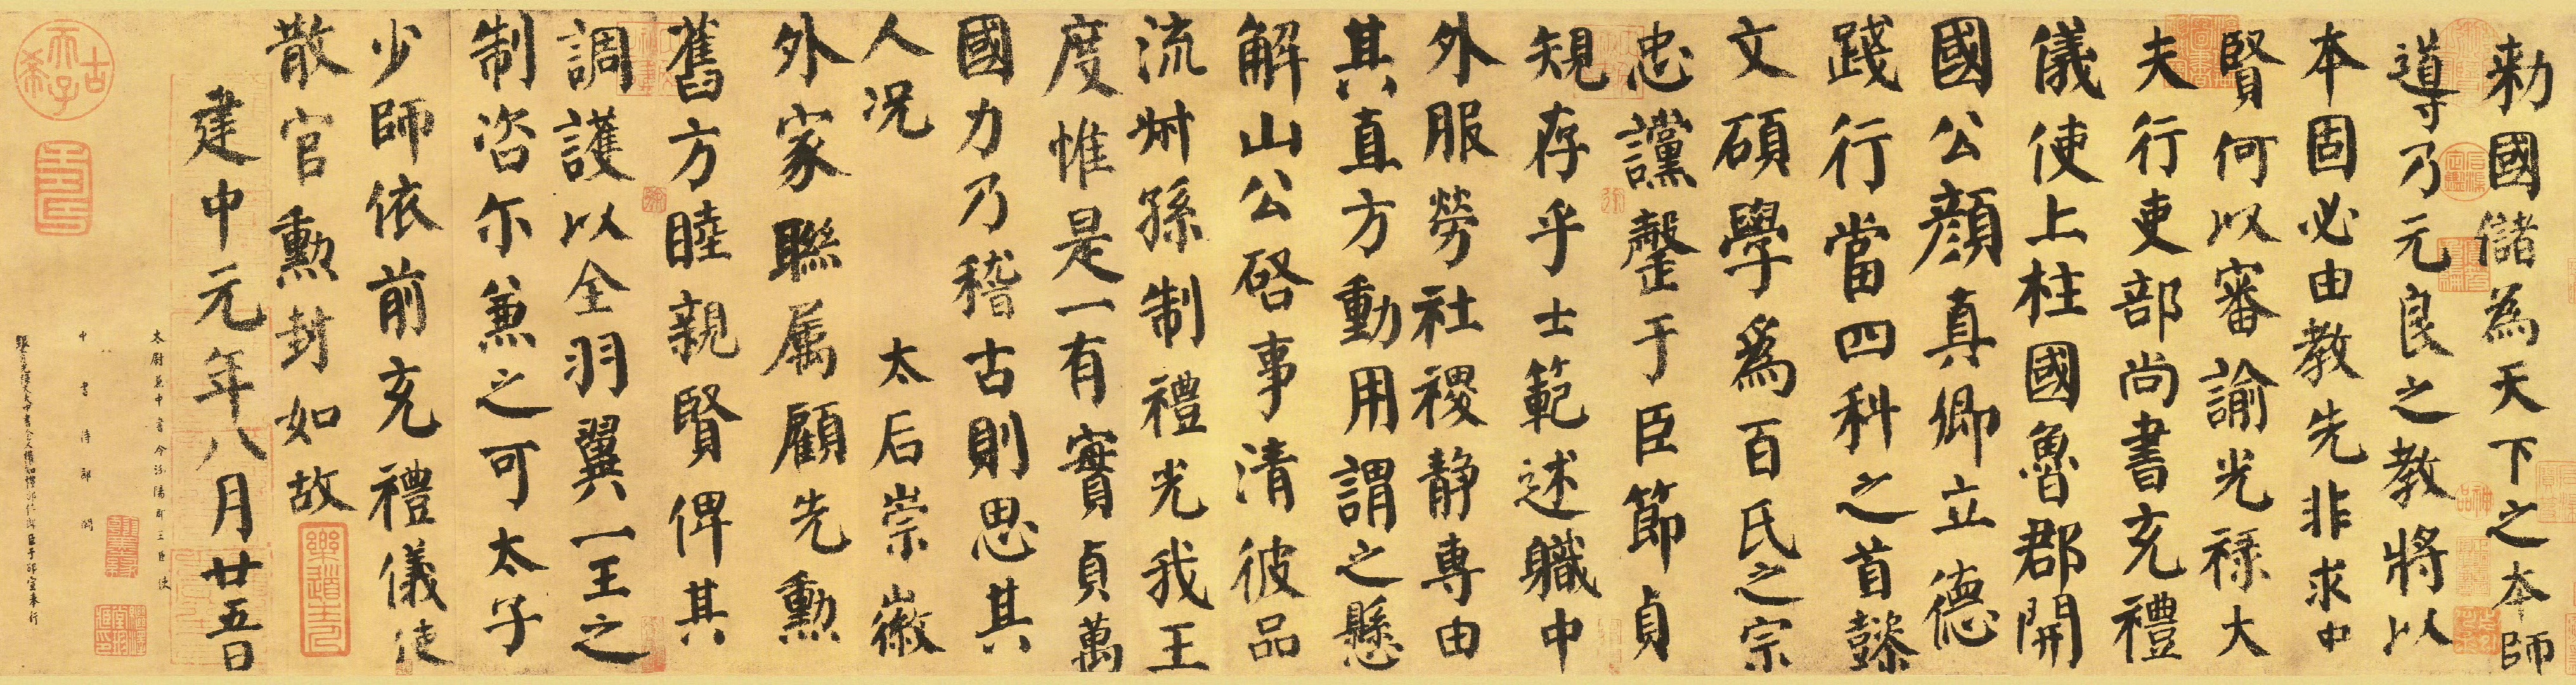 勑國儲為天下之本師
導乃元良之教將以
本固必由教先非求中
賢何以審諭光祿大
夫行吏部尚書充禮
儀使上柱國魯郡開
國公顏真卿立德
踐行當四科之首懿
文碩學爲百氏之宗
忠讜罄于臣節貞
規存乎士範述職中
外服勞社稷静專由
其直方動用謂之懸
解山公啓事清彼品
流叔孫制禮光我王
度惟是一有實貞萬
國力乃稽古則思其
人况 太后崇徽
外家聯属顧先勳
舊方睦親賢俾其
調護以全羽翼一王之
制咨尔兼之可太子
少師依前充禮儀使
散官勳封如故
建中元年八月廿五日
太尉兼中書令汾陽郡王臣 使
中書侍郎闕
樂道主人
古希天子